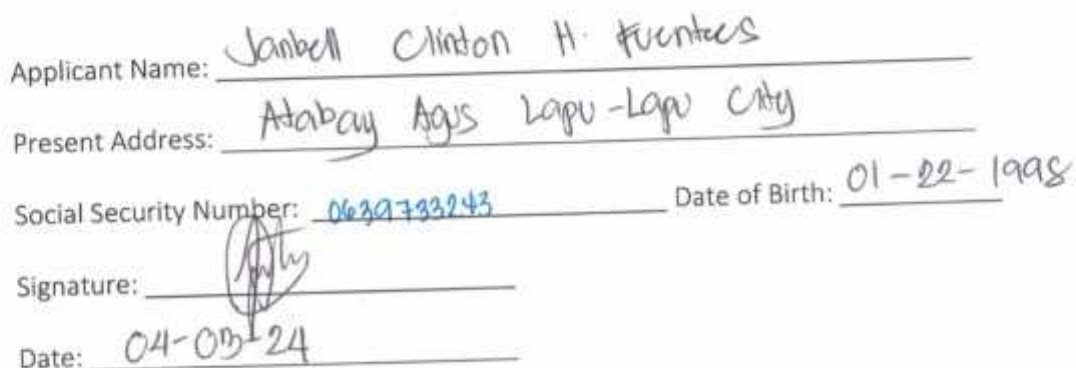 Applicant Name: Janbell Clinton H. Fuentes
Present Address: Atabay Agus Lapu-Lapu City
Social Security Number: 0639733243 Date of Birth: 01-22-1998
Signature:
Date: 04-03-24